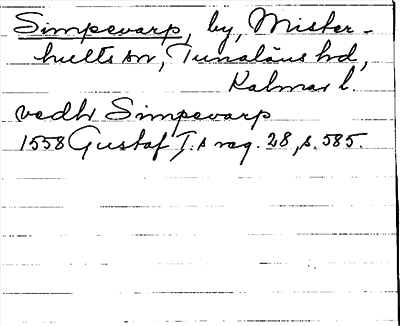 Simpevarp, by, Mister-
hults sn, Tunaläns hd,
Kalmar l.
vedh Simpevarp
1558 Gustaf I:s reg. 28, s. 585.